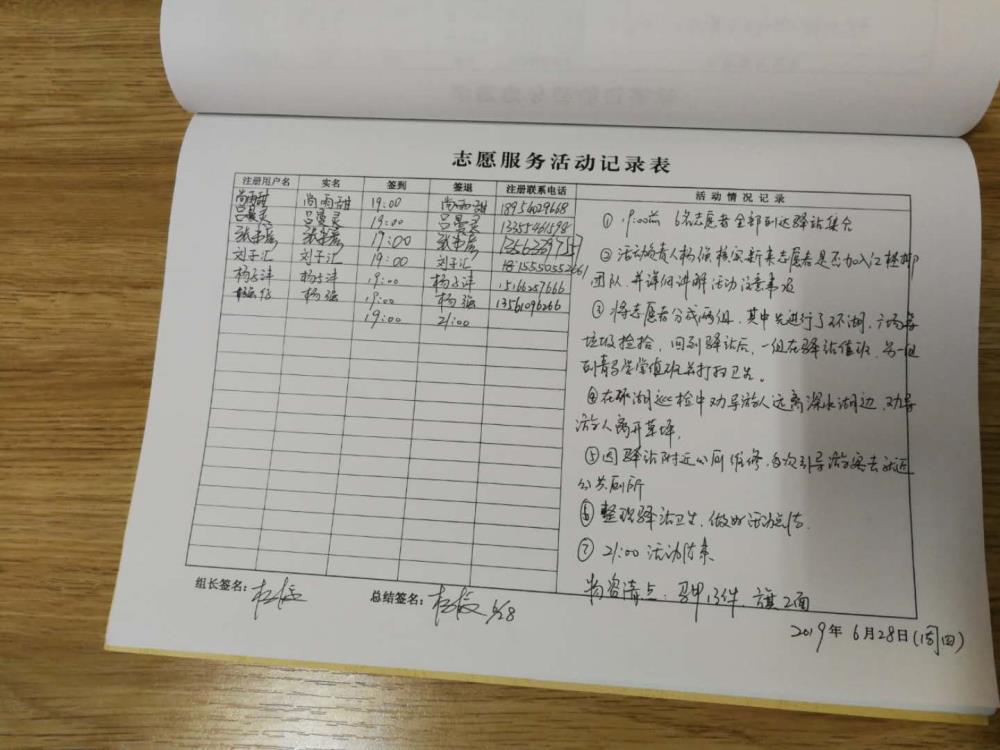 志愿服务活动记录表
注册用户名 实名 签到 签退 注册联系电话 活动情况记录
尚雨甜 尚雨甜 19:00 尚雨甜 18954029668
吕曼灵 吕曼灵 19:00 吕曼灵 13355461598
19:00
刘子汇 刘子汇 19:00 刘子汇 15550552661
杨子沣 杨子沣 19:00 杨子沣 15166257666
杨强 19:00 杨强 13561096266
19:00 21:00
① 19:00前 6名志愿者全部到达驿站集合
② 活动负责人杨强核实新来志愿者是否加入红桂柳
团队,并详细讲解活动注意事项
③ 将志愿者分成两组,其中先进行了环湖、广场等
垃圾捡拾,回到驿站后,一组在驿站值班,另一组
到青鸟学堂值班并打扫卫生。
④ 在环湖巡检中劝导游人远离深水湖边,劝导
游人离开草坪。
⑤ 因驿站附近公厕维修,多次引导游客去就近
公共厕所
⑥ 整理驿站卫生,做好活动总结.
⑦ 21:00 活动结束
物资清点:马甲13件,旗2面
组长签名: 总结签名: 6/28
2019年 6月28日(周四)